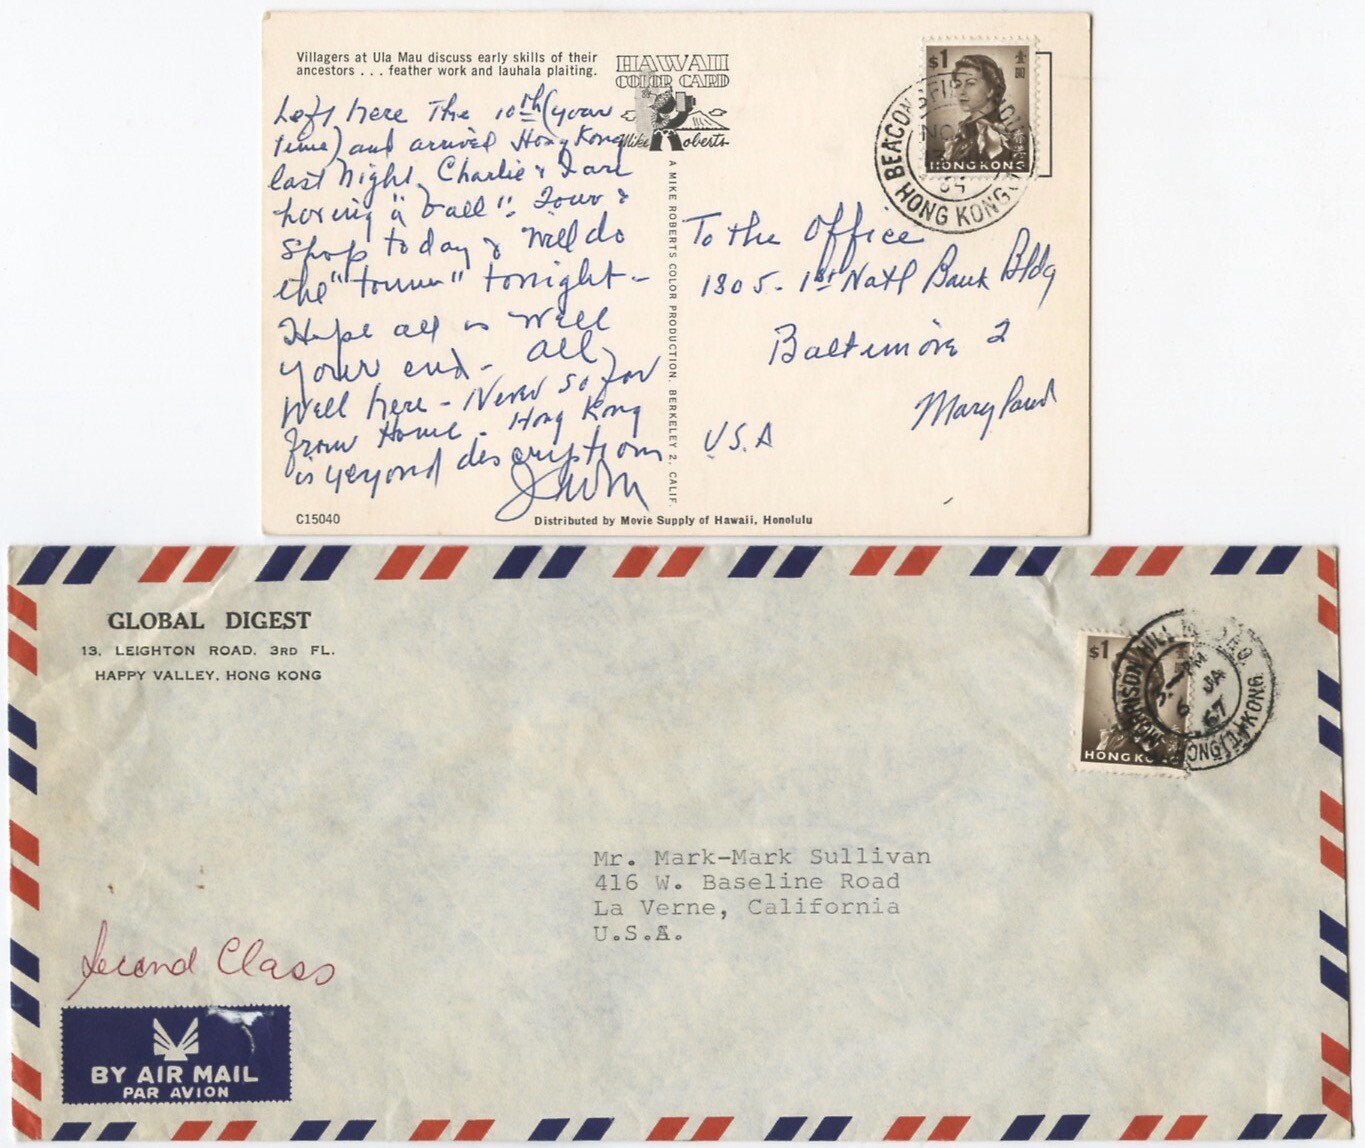 Villagers at Ula Mau discuss early skills of their
ancestors . . . feather work and lauhala plaiting.
HAWAII
COLOR CARD
Mike Roberts
Left here The 10th (your
time) and arrived Hong Kong
last night. Charlie & I are
having "a ball". Tour &
Shop today & will do
the "town" tonight -
Hope all is well
your end - all
well here - Never so far
from Home - Hong Kong
is yeyond description
A MIKE ROBERTS COLOR PRODUCTION, BERKELEY 2, CALIF.
C15040
Distributed by Movie Supply of Hawaii, Honolulu
$1
壹圓
香港
HONG KONG
BEACONSFIELD HOUSE
NO
64
HONG KONG
To the Office
1805 - 1st Natl Bank Bldg
Baltimore 2
Maryland
U.S.A
GLOBAL DIGEST
13, LEIGHTON ROAD, 3RD FL.
HAPPY VALLEY, HONG KONG
$1
HONG KO
MORRISON HILL
PM
6 JA
67
HONG KONG
Mr. Mark-Mark Sullivan
416 W. Baseline Road
La Verne, California
U.S.A.
Second Class
BY AIR MAIL
PAR AVION